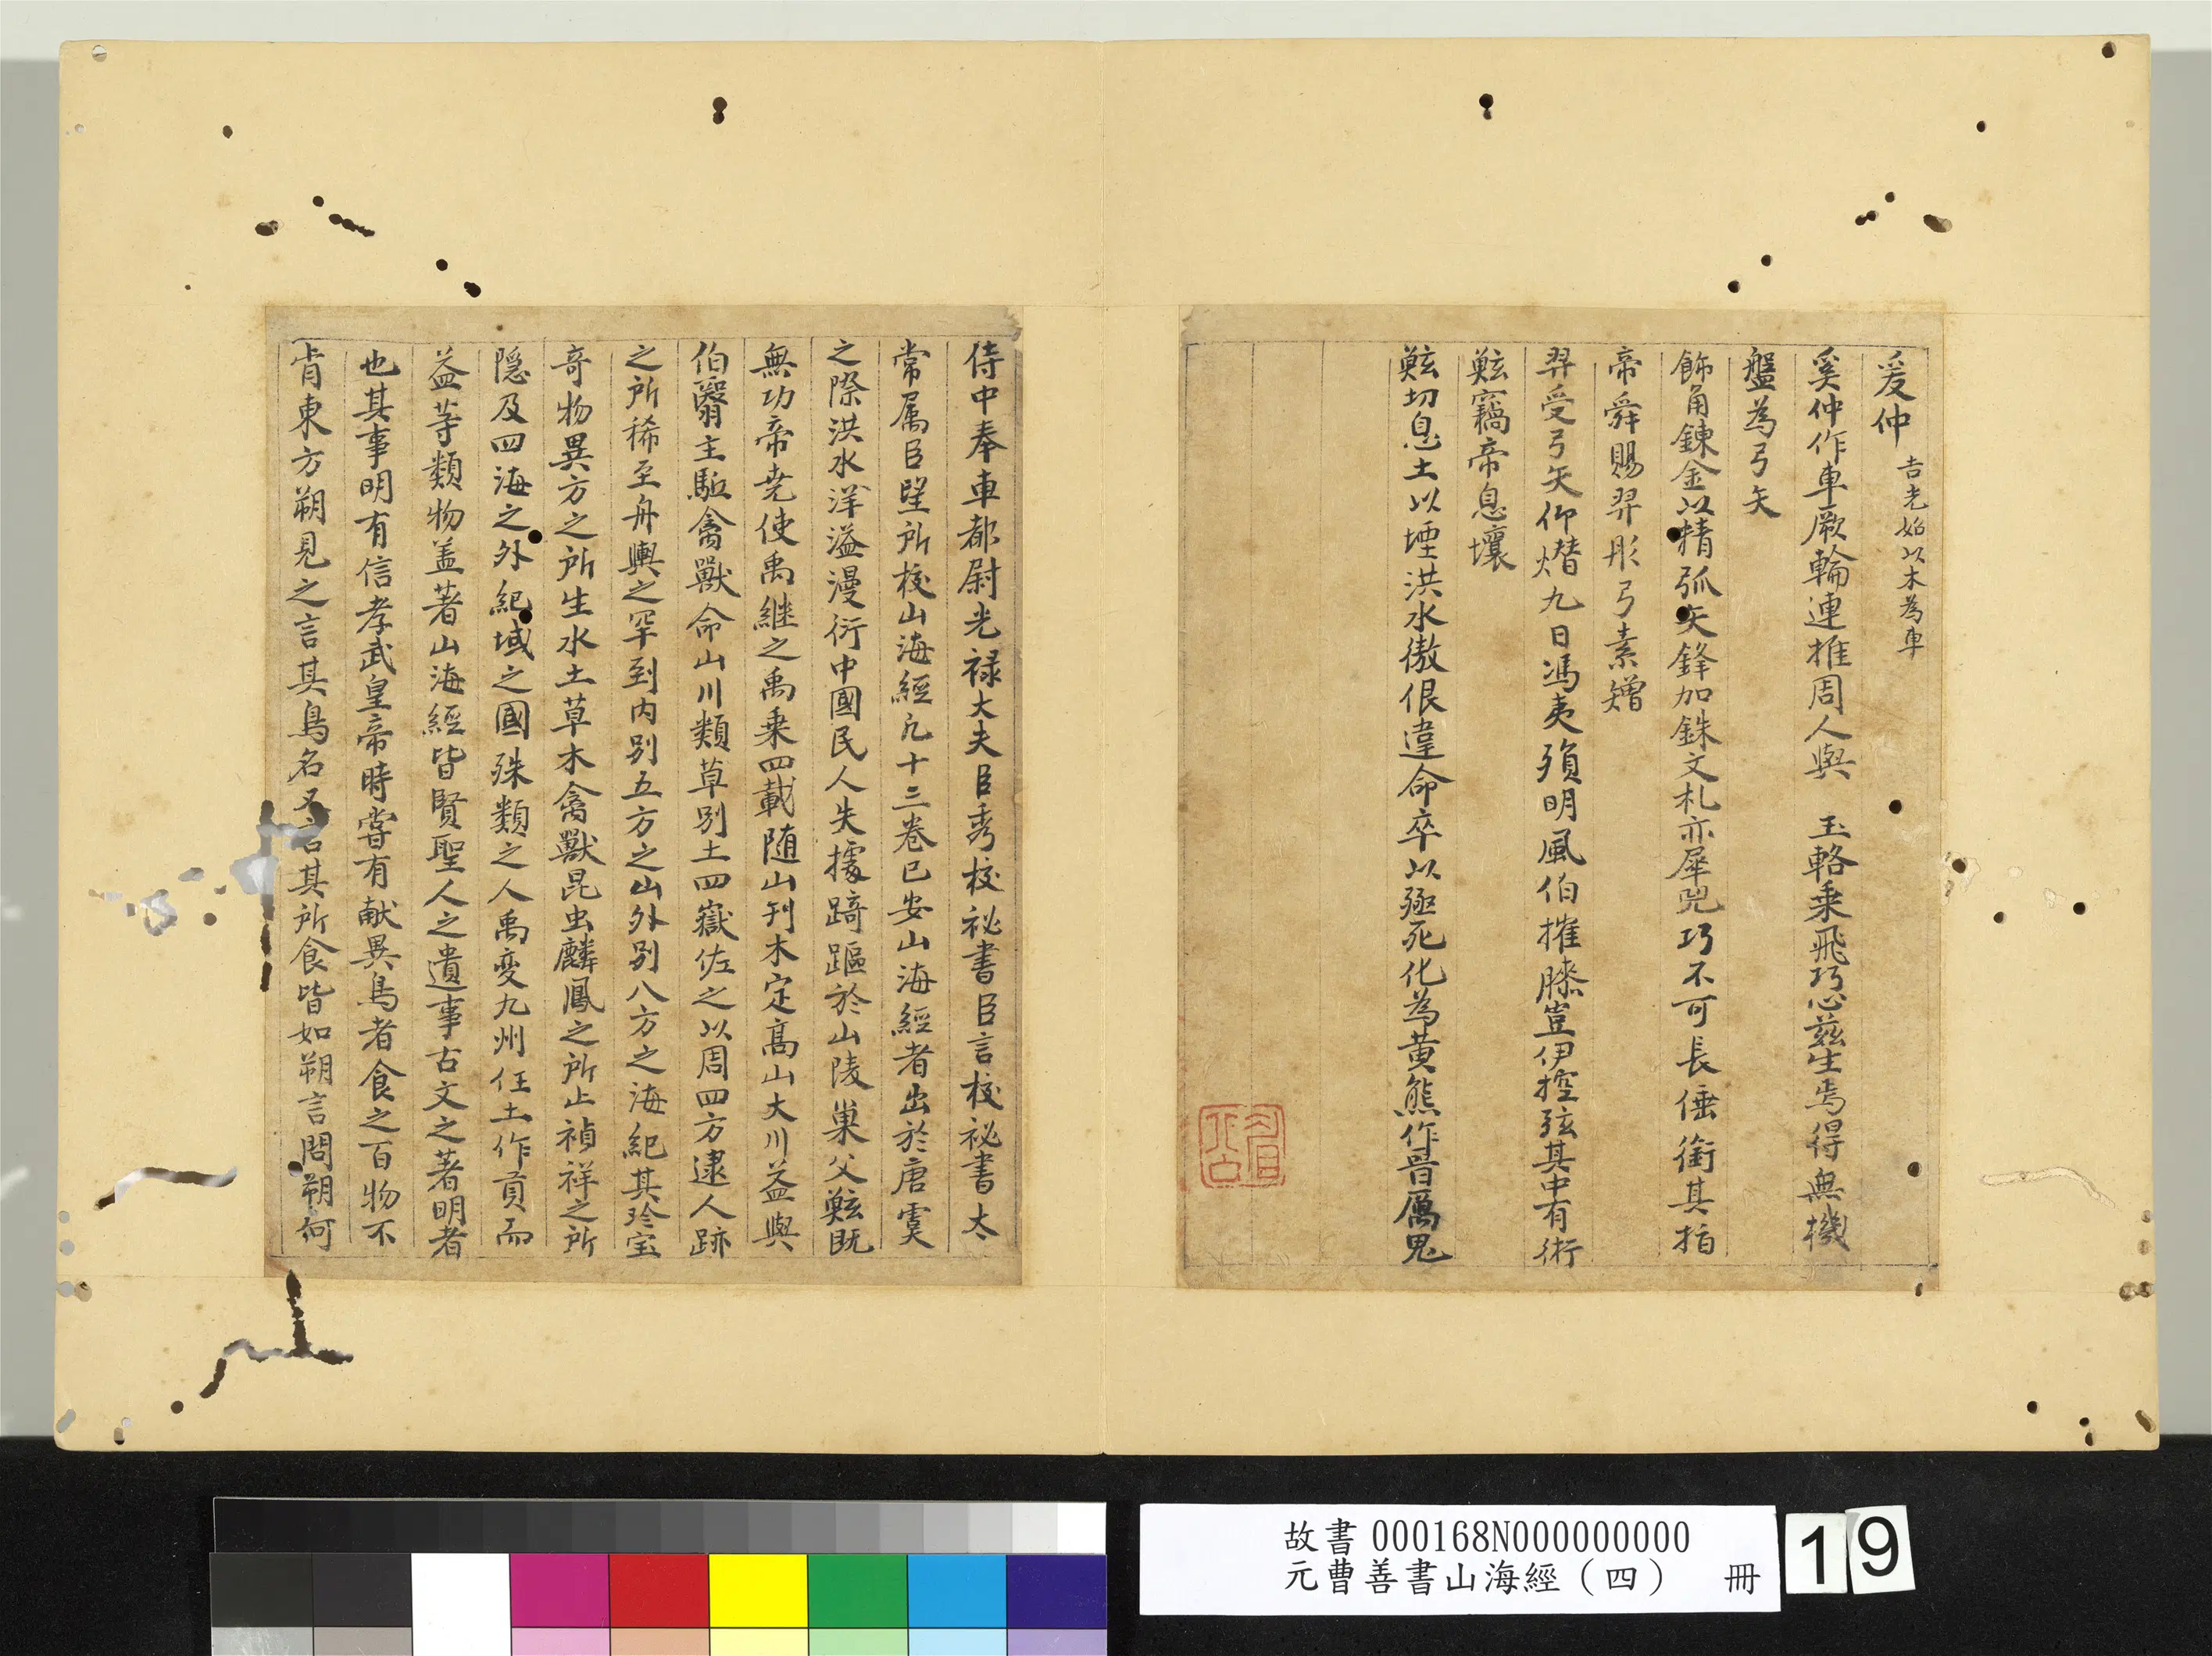 奚仲 吉光始以木為車
奚仲作車厥輪連推周人與 玉輅乗飛巧心玆生焉得無機
盤為弓矢
飾角鍊金以精弧矢鋒加銖文札亦犀兕巧不可長倕銜其指
帝舜賜羿彤弓素矰
羿受弓矢仰熸九日馮夷殞明風伯摧膝豈伊控弦其中有術
鮌竊帝息壤
鮌切息土以堙洪水傲佷違命卒以殛死化為黄熊作晉厲鬼
侍中奉車都尉光禄大夫臣秀校祕書臣言校祕書太
常属臣望所校山海經凡十三卷已安山海經者出於唐虞
之際洪水洋溢漫衍中國民人失據踦䧢於山陵巢父鮌既
無功帝尭使禹継之禹乗四載随山刋木定髙山大川益與
伯翳主駈禽獸命山川類草别土四嶽佐之以周四方逮人跡
之所稀至舟輿之罕到内别五方之山外别八方之海紀其珍宝
奇物異方之所生水土草木禽獸昆虫麟鳳之所止禎祥之所
隠及四海之外紀域之國殊類之人禹変九州任土作貢而
益䓁類物盖著山海經皆賢聖人之遺事古文之著明者
也其事明有信孝武皇帝時嘗有献異鳥者食之百物不
肯東方朔見之言其鳥名又言其所食皆如朔言問朔何
故書 000168N000000000
元曹善書山海經（四） 冊
19